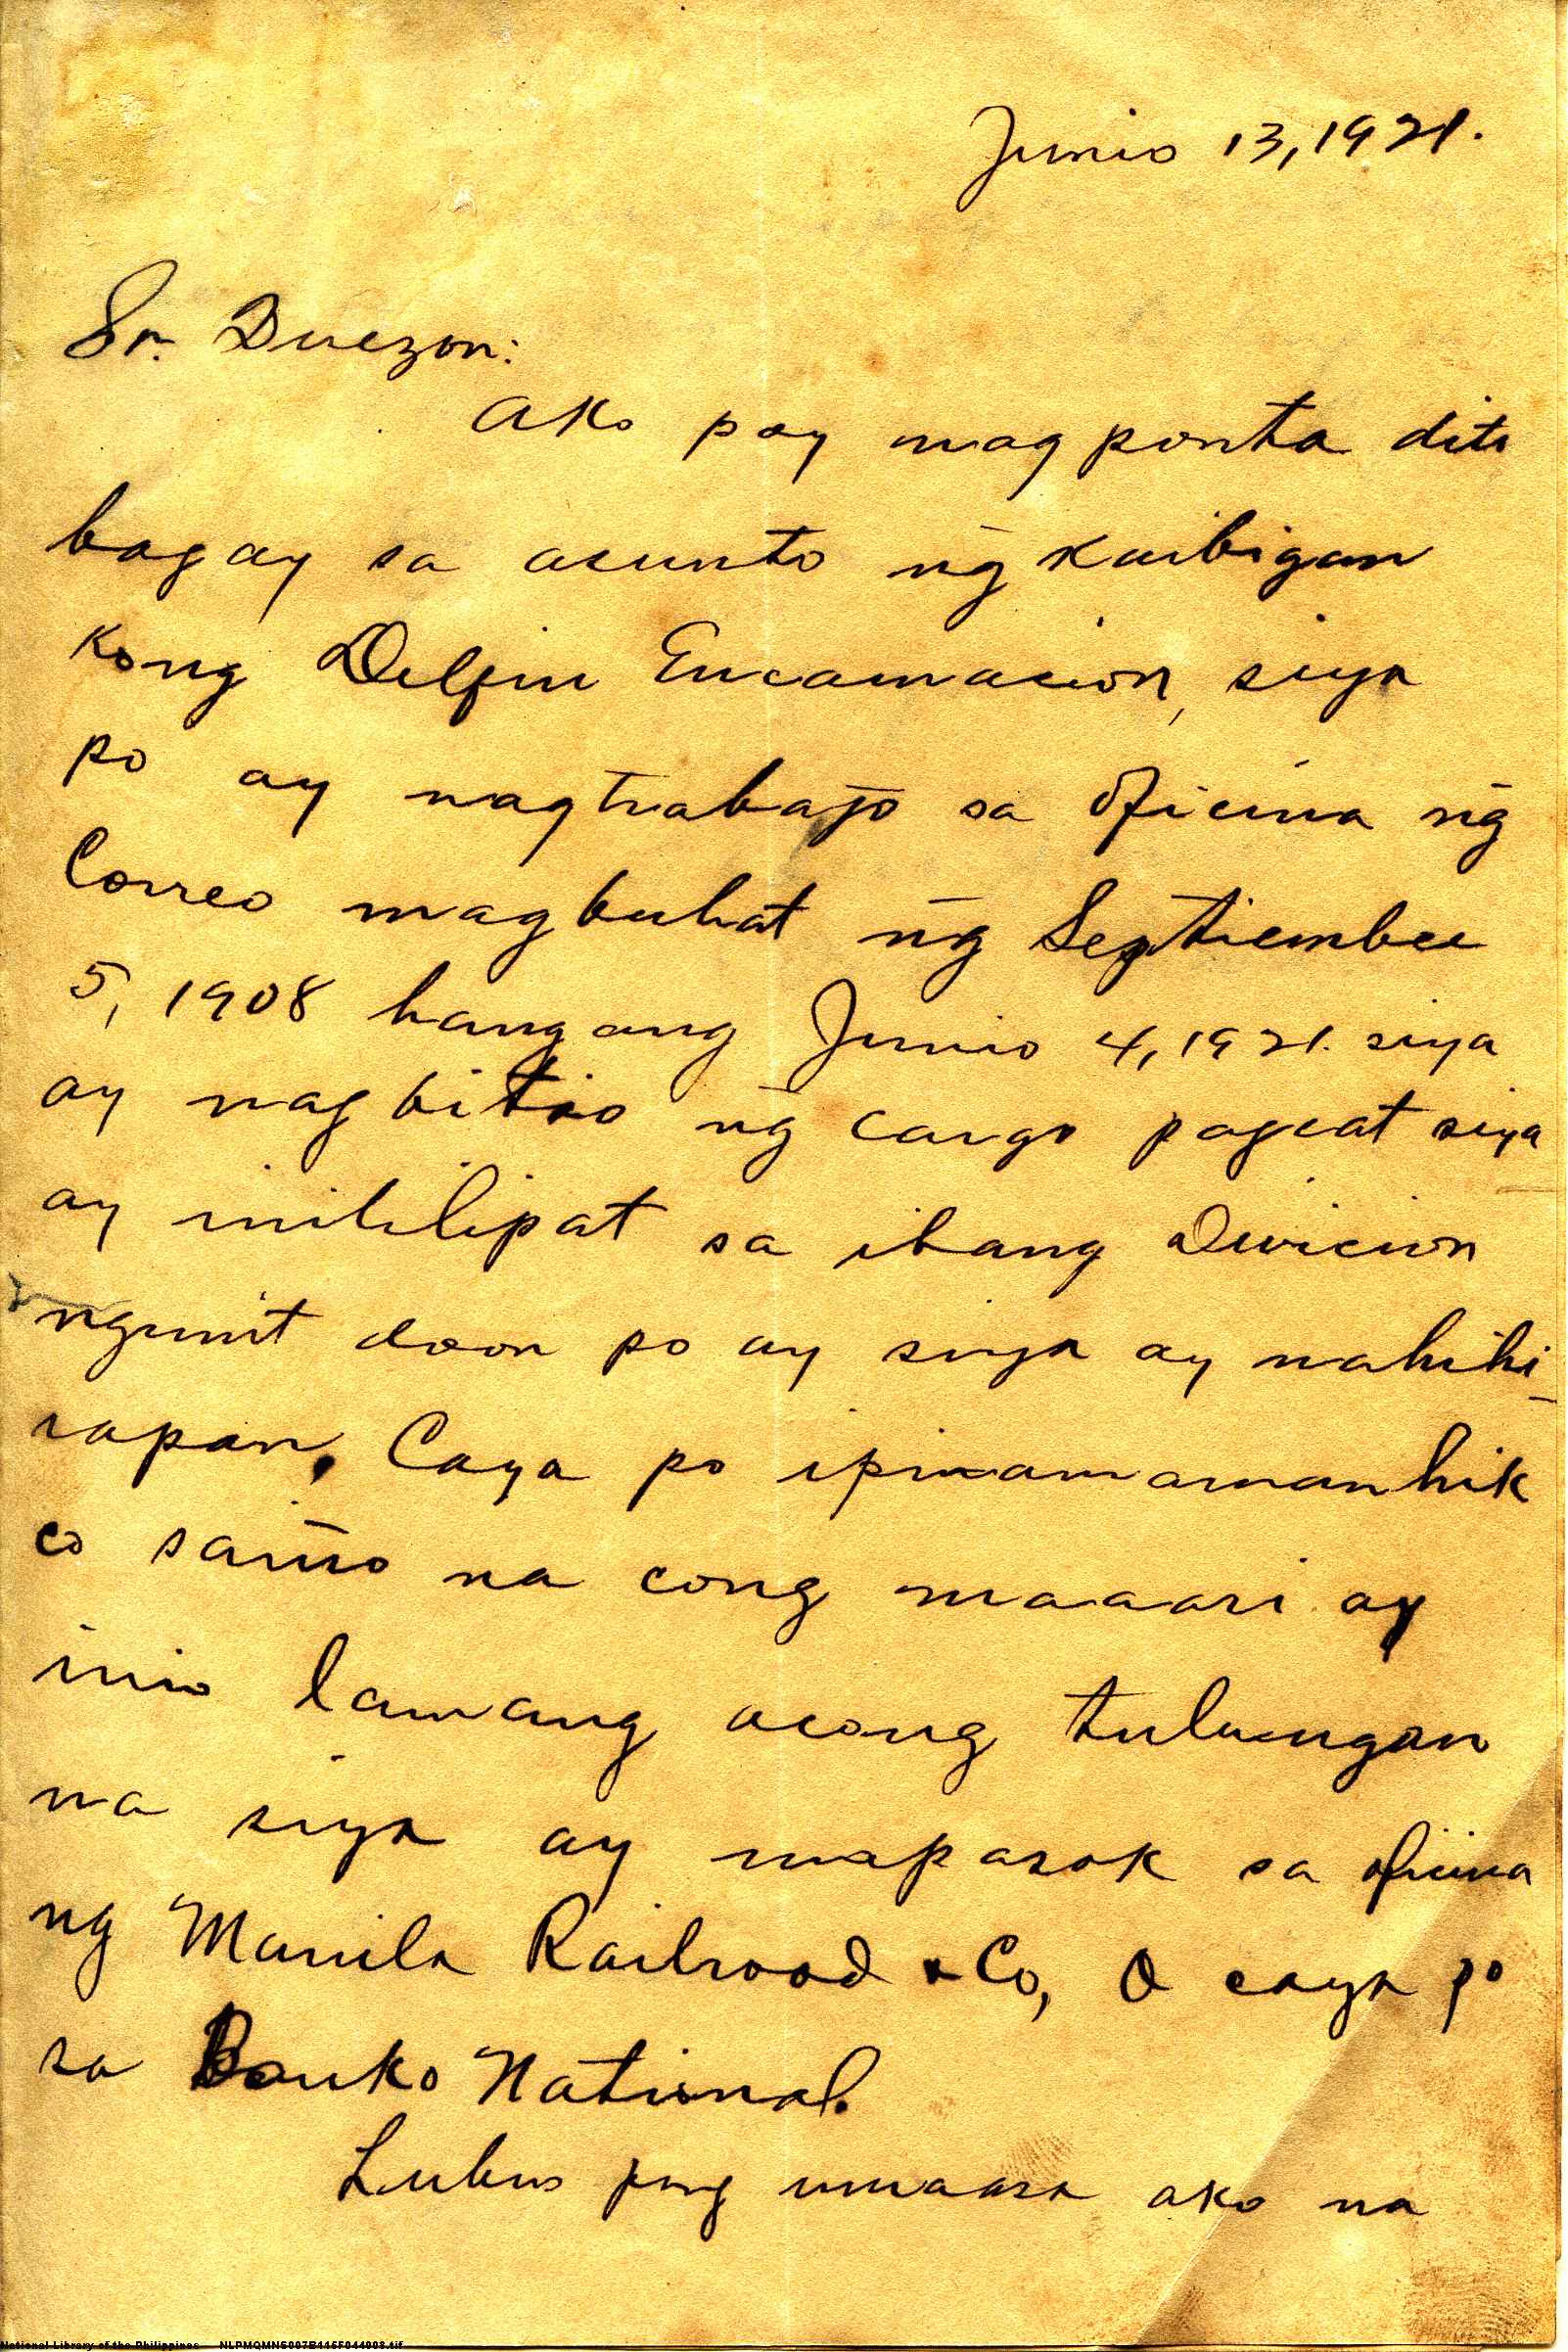 Junio 13, 1921.
Sr. Quezon:
Ako poy magponta dito
bagay sa acunto ng̃ kaibigan
kong Delfin Encarnacion, siya
po ay nagtrabajo sa oficina ng̃
Correo magbuhat ng̃ Septiembre
5, 1908 hangang Junio 4, 1921. siya
ay nagbitio ng̃ cargo pagcat siya
ay inililipat sa ibang Divicion
ngunit doon po ay siya ay nahihi-
rapan. Caya po ipinamamanhik
co sainio na cong maaari ay
inio lamang acong tulungan
na siya ay mapasok sa oficina
ng Manila Railroad & Co, O caya po
sa Banko National.
Lubus pong umaasa ako na
National Library of the Philippines NLPMQMNS007B146F044008.tif